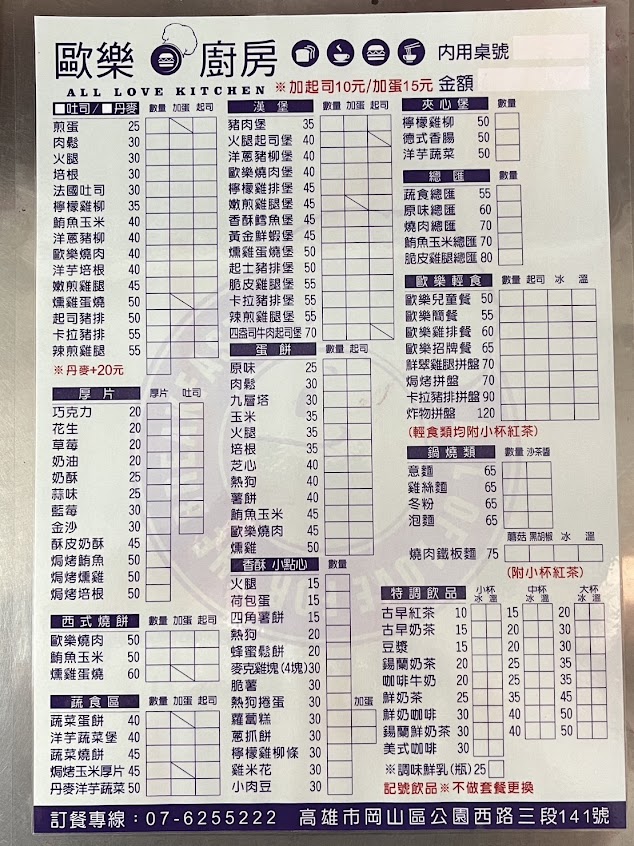 歐樂廚房
ALL LOVE KITCHEN
內用桌號
※加起司10元/加蛋15元 金額
吐司/丹麥 數量 加蛋 起司
煎蛋 25
肉鬆 30
火腿 30
培根 30
法國吐司 30
檸檬雞柳 35
鮪魚玉米 40
洋蔥豬柳 40
歐樂燒肉 40
洋芋培根 40
嫩煎雞腿 45
燻雞蛋燒 50
起司豬排 50
卡拉豬排 55
辣煎雞腿 55
※丹麥+20元
厚片 厚片 吐司
巧克力 20
花生 20
草莓 20
奶油 20
奶酥 25
蒜味 25
藍莓 30
金沙 30
酥皮奶酥 45
焗烤鮪魚 50
焗烤燻雞 50
焗烤培根 50
西式燒餅 數量 加蛋 起司
歐樂燒肉 50
鮪魚玉米 50
燻雞蛋燒 60
蔬食區 數量 加蛋 起司
蔬菜蛋餅 40
洋芋蔬菜堡 40
蔬菜燒餅 45
焗烤玉米厚片 45
丹麥洋芋蔬菜 50
漢堡 數量 加蛋 起司
豬肉堡 35
火腿起司堡 40
洋蔥豬柳堡 40
歐樂燒肉堡 40
檸檬雞排堡 45
嫩煎雞腿堡 45
香酥鱈魚堡 45
黃金鮮蝦堡 45
燻雞蛋燒堡 50
起士豬排堡 50
脆皮雞腿堡 55
卡拉豬排堡 55
辣煎雞腿堡 55
四盎司牛肉起司堡 70
蛋餅 數量 起司
原味 25
肉鬆 30
九層塔 30
玉米 35
火腿 35
培根 35
芝心 40
熱狗 40
薯餅 40
鮪魚玉米 45
歐樂燒肉 45
燻雞 50
香酥 小點心 數量
火腿 15
荷包蛋 15
四角薯餅 15
熱狗 20
蜂蜜鬆餅 20
麥克雞塊(4塊) 30
脆薯 30
熱狗捲蛋 30 加蛋
蘿蔔糕 30
蔥抓餅 30
檸檬雞柳條 30
雞米花 30
小肉豆 30
夾心堡 數量
檸檬雞柳 50
德式香腸 50
洋芋蔬菜 50
總匯 數量
蔬食總匯 55
原味總匯 60
燒肉總匯 70
鮪魚玉米總匯 70
脆皮雞腿總匯 80
歐樂輕食 數量 起司 冰 溫
歐樂兒童餐 50
歐樂簡餐 55
歐樂雞排餐 60
歐樂招牌餐 65
鮮翠雞腿拼盤 70
焗烤拼盤 70
卡拉豬排拼盤 90
炸物拼盤 120
(輕食類均附小杯紅茶)
鍋燒類 數量 沙茶醬
意麵 65
雞絲麵 65
冬粉 65
泡麵 65
蘑菇 黑胡椒 冰 溫
燒肉鐵板麵 75
(附小杯紅茶)
特調飲品 小杯 中杯 大杯
冰 溫 冰 溫 冰 溫
古早紅茶 10 15 20
古早奶茶 15 20 30
豆漿 15 20 30
錫蘭奶茶 20 25 35
咖啡牛奶 20 25 35
鮮奶茶 25 35 45
鮮奶咖啡 30 40 50
錫蘭鮮奶茶 30 40 50
美式咖啡 30
※調味鮮乳(瓶) 25
記號飲品※不做套餐更換
訂餐專線：07-6255222 高雄市岡山區公園西路三段141號